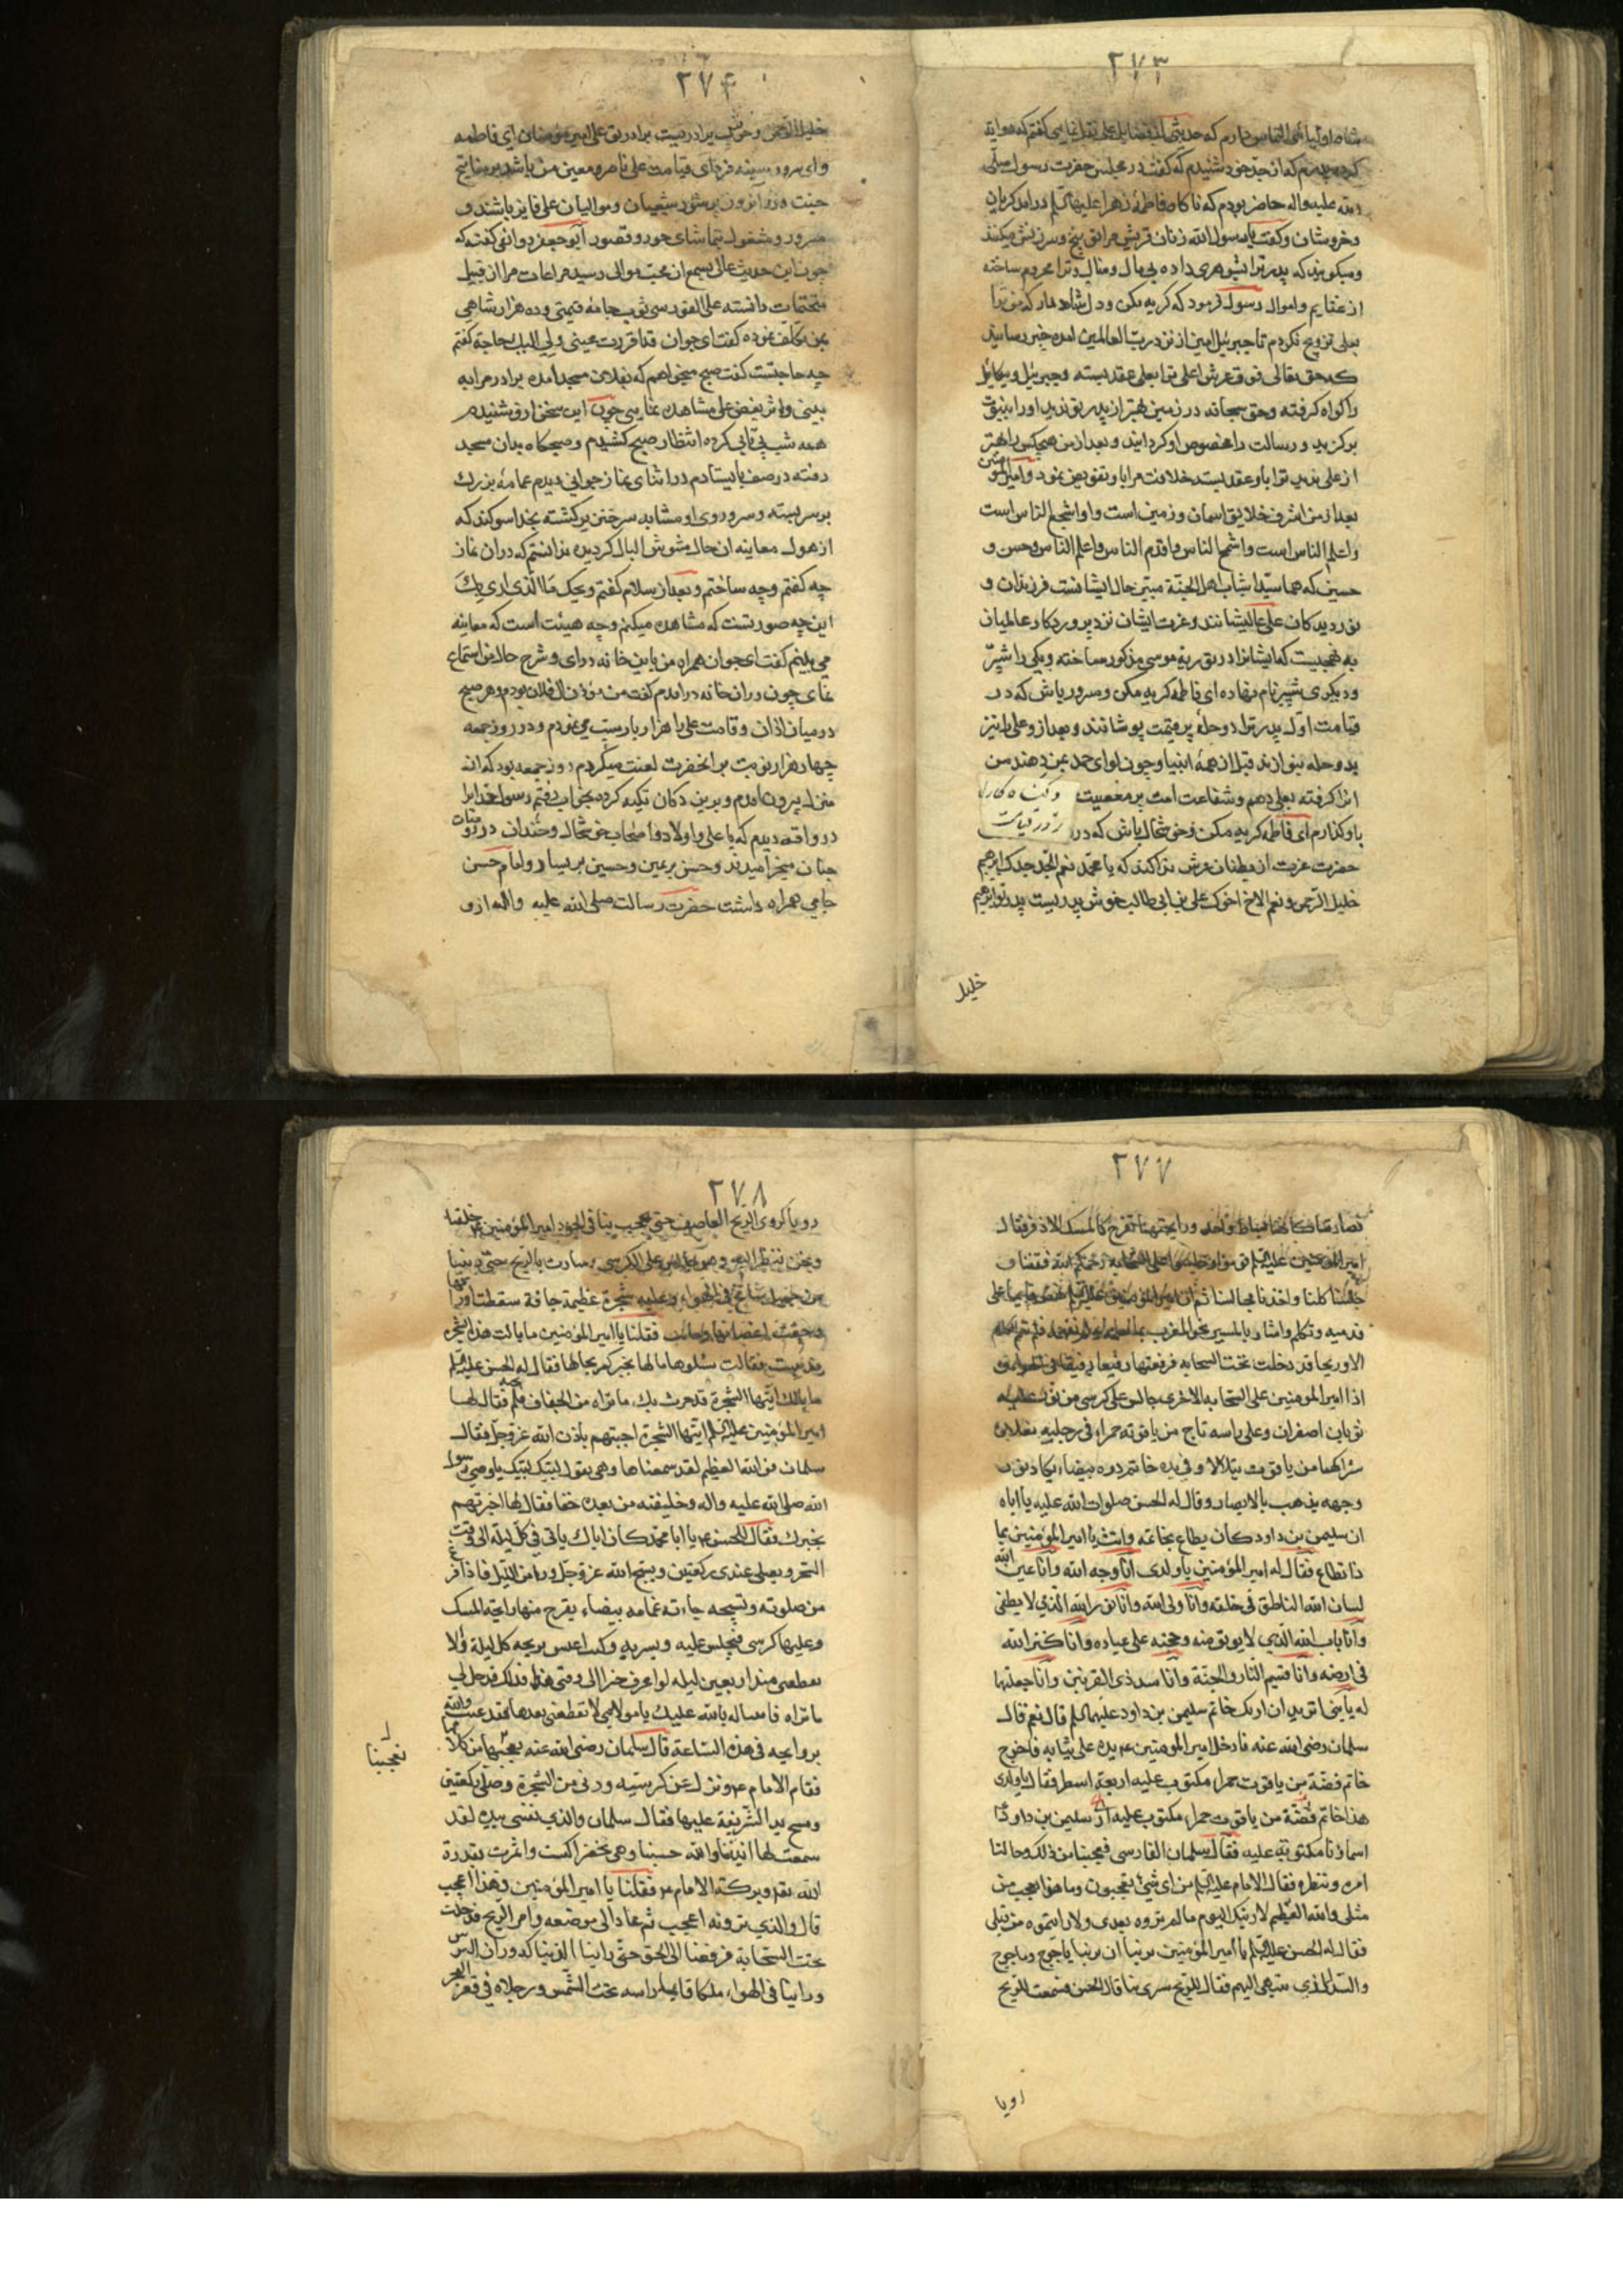 ٢٧٣
شاه اولیا التماس دارم که حدیثی از فضایل علی نقل نمایی گفتم که روایة
کرد پدرم که از جد خود شنیدم که گفت در مجلس حضرت رسول صلی
الله علیه واله حاضر بودم که ناکاه فاطمهٔ زهرا علیها السلم درامد کریان
وخروشان وکفت یا رسول الله زنان قریش مرا توبیخ وسرزنش میکنند
ومیکویند که پدر ترا بشوهری داده بی مال ومنال وترا محروم ساخته
از غنایم واموال رسول فرمود که کریه مکن ودل شاد دار که من ترا
بعلی تزویج نکردم تا جبرئیل امین از نزد رب العالمین امده خبر رسانید
که حق تعالی فوق عرش اعلی ترا بعلی عقد بسته وجبرئیل ومیکائیل
را کواه کرفته وحق سبحانه در زمین بهتر از پدر تو ندید اورا بنبوت
برکزید ورسالت را مخصوص او کردانید وبعد از من هیچکس را بهتر
از علی ندید ترا باو عقد بست وخلافت مرا باو تفویض نمود وامیرالمؤمنین
بعد از من اشرف خلایق اسمان وزمین است واو اشجع الناس است
واعلم الناس است واسمح الناس واقدم الناس واعلم الناس وحسن و
حسین که هما سیدا شباب اهل الجنة مبین حال ایشانست فرزندان و
نور دیدکان علی عالیشانند وعزت ایشان نزد پروردکار عالمیان
به نحویست که ایشانرا در توریة موسی مذکور ساخته ویکی را شبّر
ودیکری شبیر نام نهاده ای فاطمه کریه مکن ومسرور باش که در
قیامت اول پدر ترا دو حلهٔ پر قیمت پوشانند وبعد از وعلی را نیز
بدو حله بنوازند قبل از همهٔ انبیا وچون لوای حمد بمن دهند من
انرا کرفته بعلی دهم وشفاعت امت پر معصیت
باو کذارم ای فاطمه کریه مکن وخوشحال باش که در روز قیامت
حضرت عزت از بطنان عرش ندا کند که یا محمد نعم الجد جدک ابرهیم
خلیل الرحمن ونعم الاخ اخوک علی بن ابی طالب خوش پدریست پدر تو ابرهیم
خلیل
٢٧۴
خلیل الرحمن وخوش برادریست برادر تو علی امیر مؤمنان ای فاطمه
وای سرور سینه فردای قیامت علی ناصر ومعین من باشد بر مفاتیح
جنت در آنروز پرشور شیعیان وموالیان علی فایز باشند و
مسرور ومشغول بتماشای حور وقصور ابو جعفر دوانقی کفت که
چون این حدیث عالی بسمع ان محب موالی رسید مراعات مرا از قبیل
متحتمات دانسته علی الفور سی ثوب جامهٔ قیمتی وده هزار شاهی
بمن تکلف نموده کفت ای جوان قد اقررت عینی ولی الیک حاجة کفتم
چه حاجتست کفت صبح میخواهم که بفلان مسجد امده برادر مرا به
بینی واثر بغض علی مشاهده نمایی چون این سخن ازو شنیدم
همه شب بی تابی کرده انتظار صبح کشیدم وصبحکاه بدان مسجد
رفته در صف بایستادم در اثنای نماز جوانی دیدم عمامهٔ بزرک
بر سر بسته وسر وروی او مشابه سر خنزیر کشته بخدا سوکند که
از هول معاینه ان حال مشوش البال کردیده ندانستم که دران نماز
چه کفتم وچه ساختم وبعد از سلام کفتم ویحک ما الّذی اری بکَ
این چه صورتست که مشاهده میکنم وچه هیئت است که معاینه
می بینم کفت ای جوان همراه من باین خانه درای وشرح حال من استماع
نمای چون دران خانه درامدم کفت من مؤذن ال فلان بودم وهر صبح
در میان اذان واقامت علی را هزار بار سب می نمودم ودر روز جمعه
چهار هزار نوبت بر انحضرت لعنت میکردم روز جمعه بود که از
منزل بیرون امدم وبرین دکان تکیه کرده بخواب رفتم رسول خدا را
در واقعه دیدم که با علی واولاد واصحاب خوشحال وخندان در روضات
جنان میخرامیدند وحسن بر یمین وحسین بر یسار وامام حسن
جامی همراه داشت حضرت رسالت صلی الله علیه واله ازو
٢٧٧
امیر المؤمنین علیه السلم قوموا واجلسوا علی السحابه رحمکم الله فقمنا و
جلسنا کلنا واخذنا مجالسنا ثم ان امیر المؤمنین علیه السلم نهض قایما علی
قدمیه وتکلم واشار بالمسیر نحو المغرب
الا وریحا قد دخلت تحت السحابه فرفعتها رفیعا رفیقا فی الهواء
اذا امیر المومنین علی السحابه الاخری جالس علی کرسی من نور علیه
ثوبان اصفران وعلی راسه تاج من یاقوته حمراء وفی رجلیه نعلان
شراکهما من یاقوت یتلالا وفی یده خاتم دره بیضاء یکاد نور
وجهه یذهب بالابصار وقال له الحسن صلوات الله علیه یا اباه
ان سلیمن بن داود کان یطاع بخاتمه وانت یا امیر المؤمنین بما
ذا تطاع فقال له امیر المؤمنین یا ولدی انا وجه الله وانا عین الله
لسان الله الناطق فی خلقه وانا ولی الله وانا نور الله الذی لا یطفی
وانا باب الله الذی لا یوتی منه وحجته علی عباده وانا کنز الله
فی ارضه وانا قسیم النار والجنة وانا سد ذی القرنین وانا جعلتها
له یا بنی اترید ان اریک خاتم سلیمن بن داود علیهما السلم قال نعم قال
سلمان رضی الله عنه فادخل امیر المومنین ع یده علی ثیابه فاخرج
خاتم فضّة من یاقوت حمراء مکتوب علیه اربعة اسطر فقال یا ولدی
هذا خاتم فضّة من یاقوت حمراء مکتوب علیه ای سلیمن بن داود ذا
اسماؤنا مکتوبة علیه فقال سلمان الفارسی فعجبنا من ذلک وحالتنا
امره وننظره فقال الامام علیه السلم من ای شیئ تعجبون وما هو اعجب من
مثلی والله العظیم لارینکم الیوم ما لم تروه بعدی ولا رایتموه من قبلی
فقال له الحسن علیه السلم یا امیر المؤمنین نرید ان ترینا یاجوج وماجوج
والسد الذی ینتهی الیهم فقال للریح سری بنا قال الحسن فسمعت للریح
رویا
٢٧٨
دویا کدوی الریح العاصف حتی یعجب بنا فی الجو وامیر المؤمنین ع خلفنا
ونحن ننظر الیه وهو جالس علی الکرسی وسارت بالریح حتی وقفنا
من جبل شامخ فی الهواء وعلیه شجرة عظیمة جافة سقطت اوراقها
وجفت اغصانها فقلنا یا امیر المؤمنین ما بالت هذه الشجره
قد یبست فقالت سئلوها ما لها تخبرکم بحالها فقال له الحسن علیه السلم
ما بالک ایتها الشجرة قد حدث بک ما نراه من الجفاف فلم تجبه فقال لها
امیر المؤمنین علیه السلم ایتها الشجرة اجبتهم باذن الله عزوجل فقال
سلمان فو الله العظیم لقد سمعناها وهی تقول لبیک لبیک یا وصی رسول
الله صلی الله علیه واله وخلیفته من بعده حقا فقال لها اخبرتهم
بخبرک فقال للحسن ع یا ابا محمد کان اباک یاتی فی کل لیلة الی وقت
السحر ویصلی عندی رکعتین ویسبح الله عزوجل وردا من اللیل فاذا فرغ
من صلوته وتسبیحه جاءته غمامه بیضاء یفرح منها رایحة المسک
وعلیها کرسی فیجلس علیه ویسیر به وکنت اعیش بریحه کل لیلة ولا
یقطعنی منذ اربعین لیله لو اعرف خبرا الی وقتی هذا فذلک قد حل لی
ما تراه فاساله بالله علیک یا مولای لا تقطعنی بعدها لقد عشت والله
بروایحه فی هذه الساعة قال سلمان رضی الله عنه
تعجبنا
فقام الامام ع ونزل عن کرسیه ودنی من الشجرة وصلی رکعتین
ومسح ید الشریفة علیها فقال سلمان والذی نفسی بیده لقد
سمعت لها انینا والله حسبنا وهی تخضر اکست واثمرت بقدرة
الله تعا وبرکة الامام ع فقلنا یا امیر المؤمنین وهذا اعجب
قال والذی ترونه اعجب ثم عاد الی موضعه وامر الریح فدخلت
تحت السحابة فرفعنا الی الجو حتی راینا الدنیا کدوران الترس
وراینا فی الهواء ملکا قایما راسه تحت الشمس ورجلاه فی قعر البحر